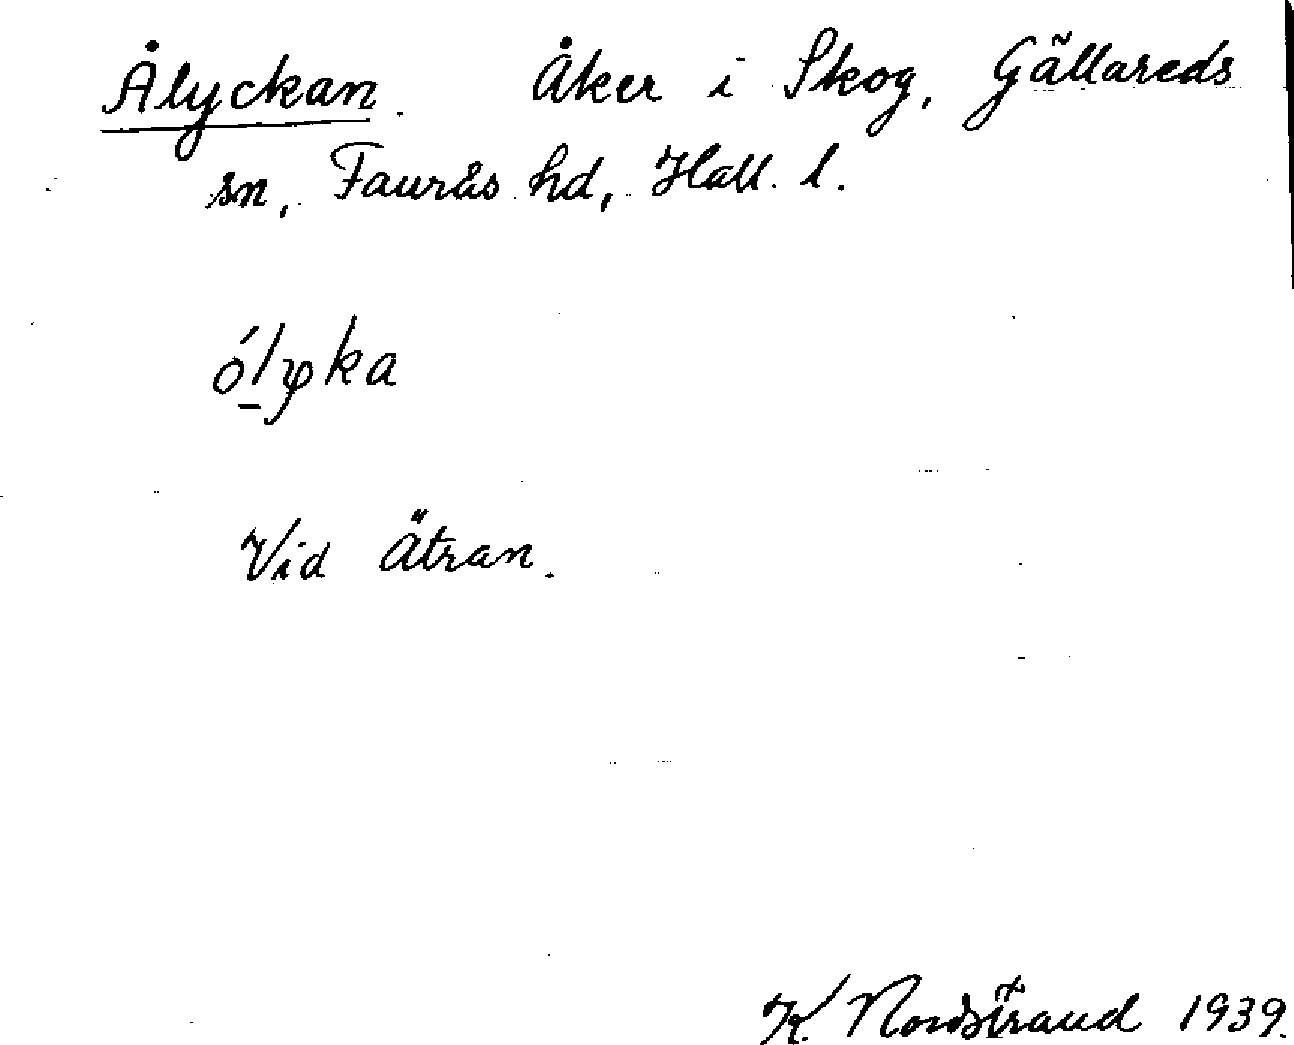 Ålyckan. Åker i Skog, Gällareds
sn, Faurås hd, Hall. l.
ólyka
Vid Ätran.
K. Nordstrand 1939.